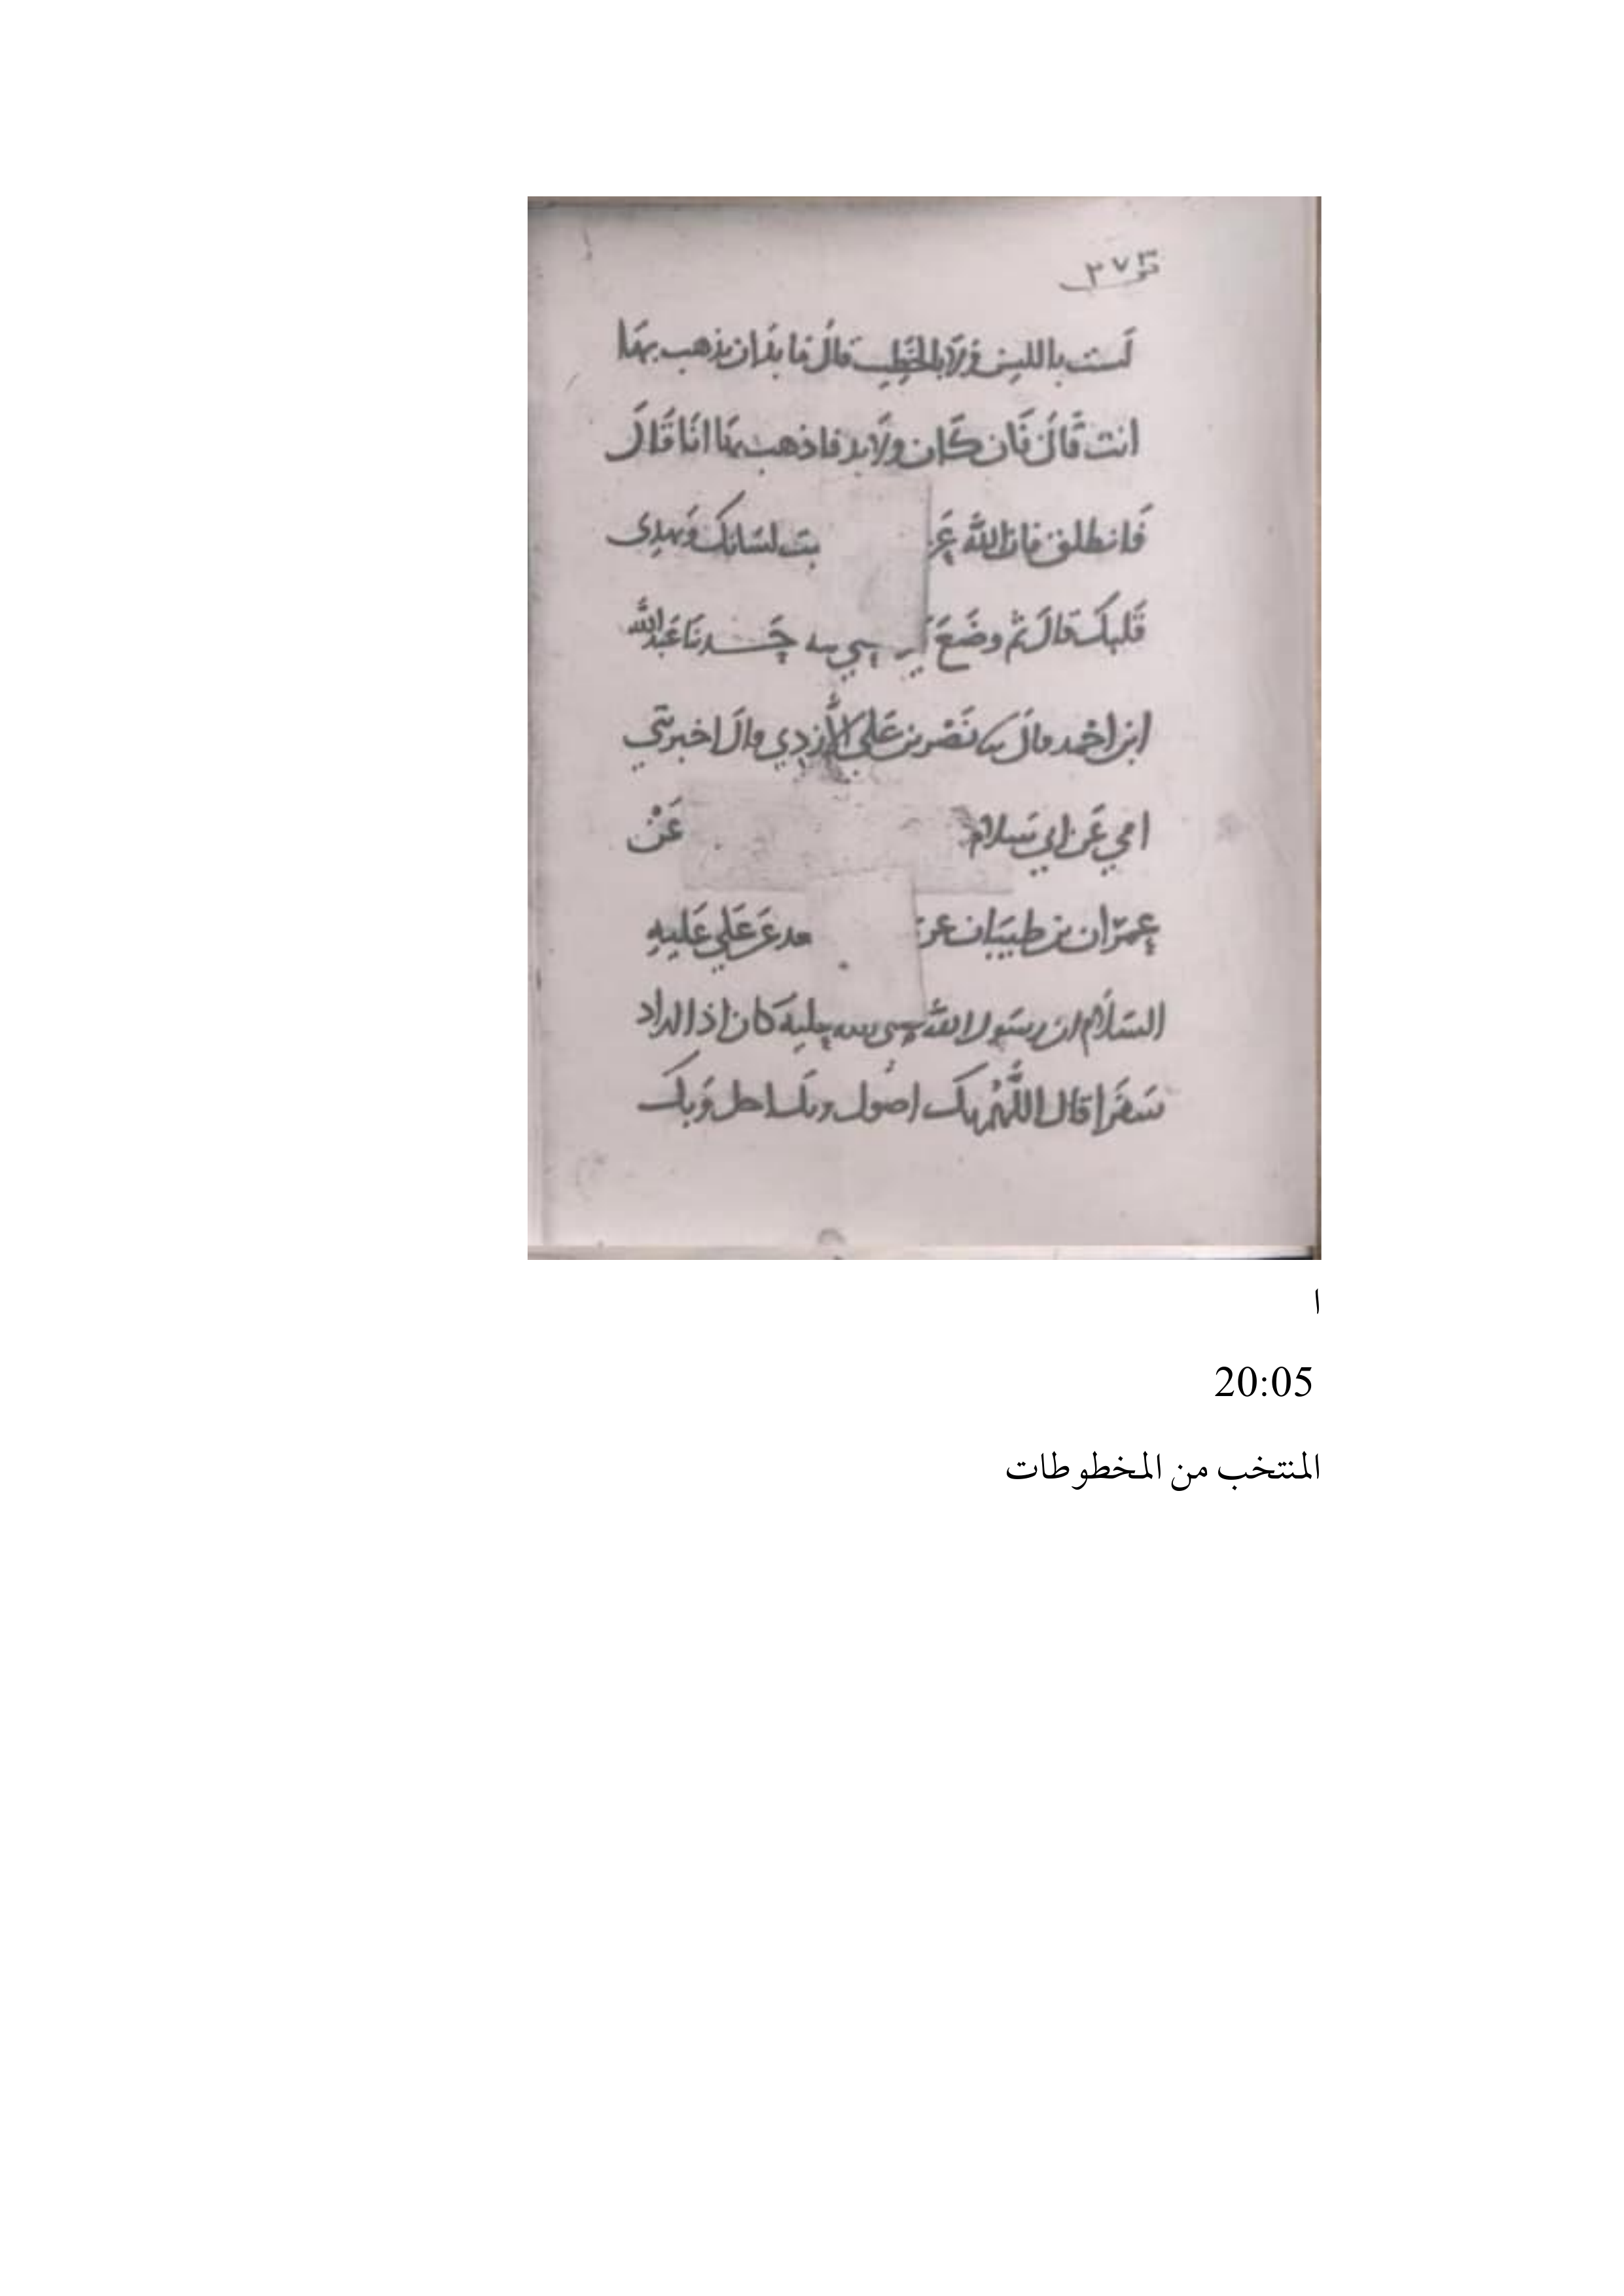 ٢٧٣
لست باللسن ولا بالخطيب قال ما بد ان يذهب بها
انت قال فان كان ولا بد فاذهب بها انا قال
فانطلق فان الله بت لسانك ويهدى
قلبك قال ثم وضع حدثنا عبد الله
ابن احمد قال نصر بن علي الأزدي قال اخبرني
ابي عن ابي سلام عن
عمران بن ظبيان عن علي عليه
السلام ان رسول الله كان اذا اراد
سفرا قال اللهم بك اصول وبك احل وبك
ا
20:05
المنتخب من المخطوطات